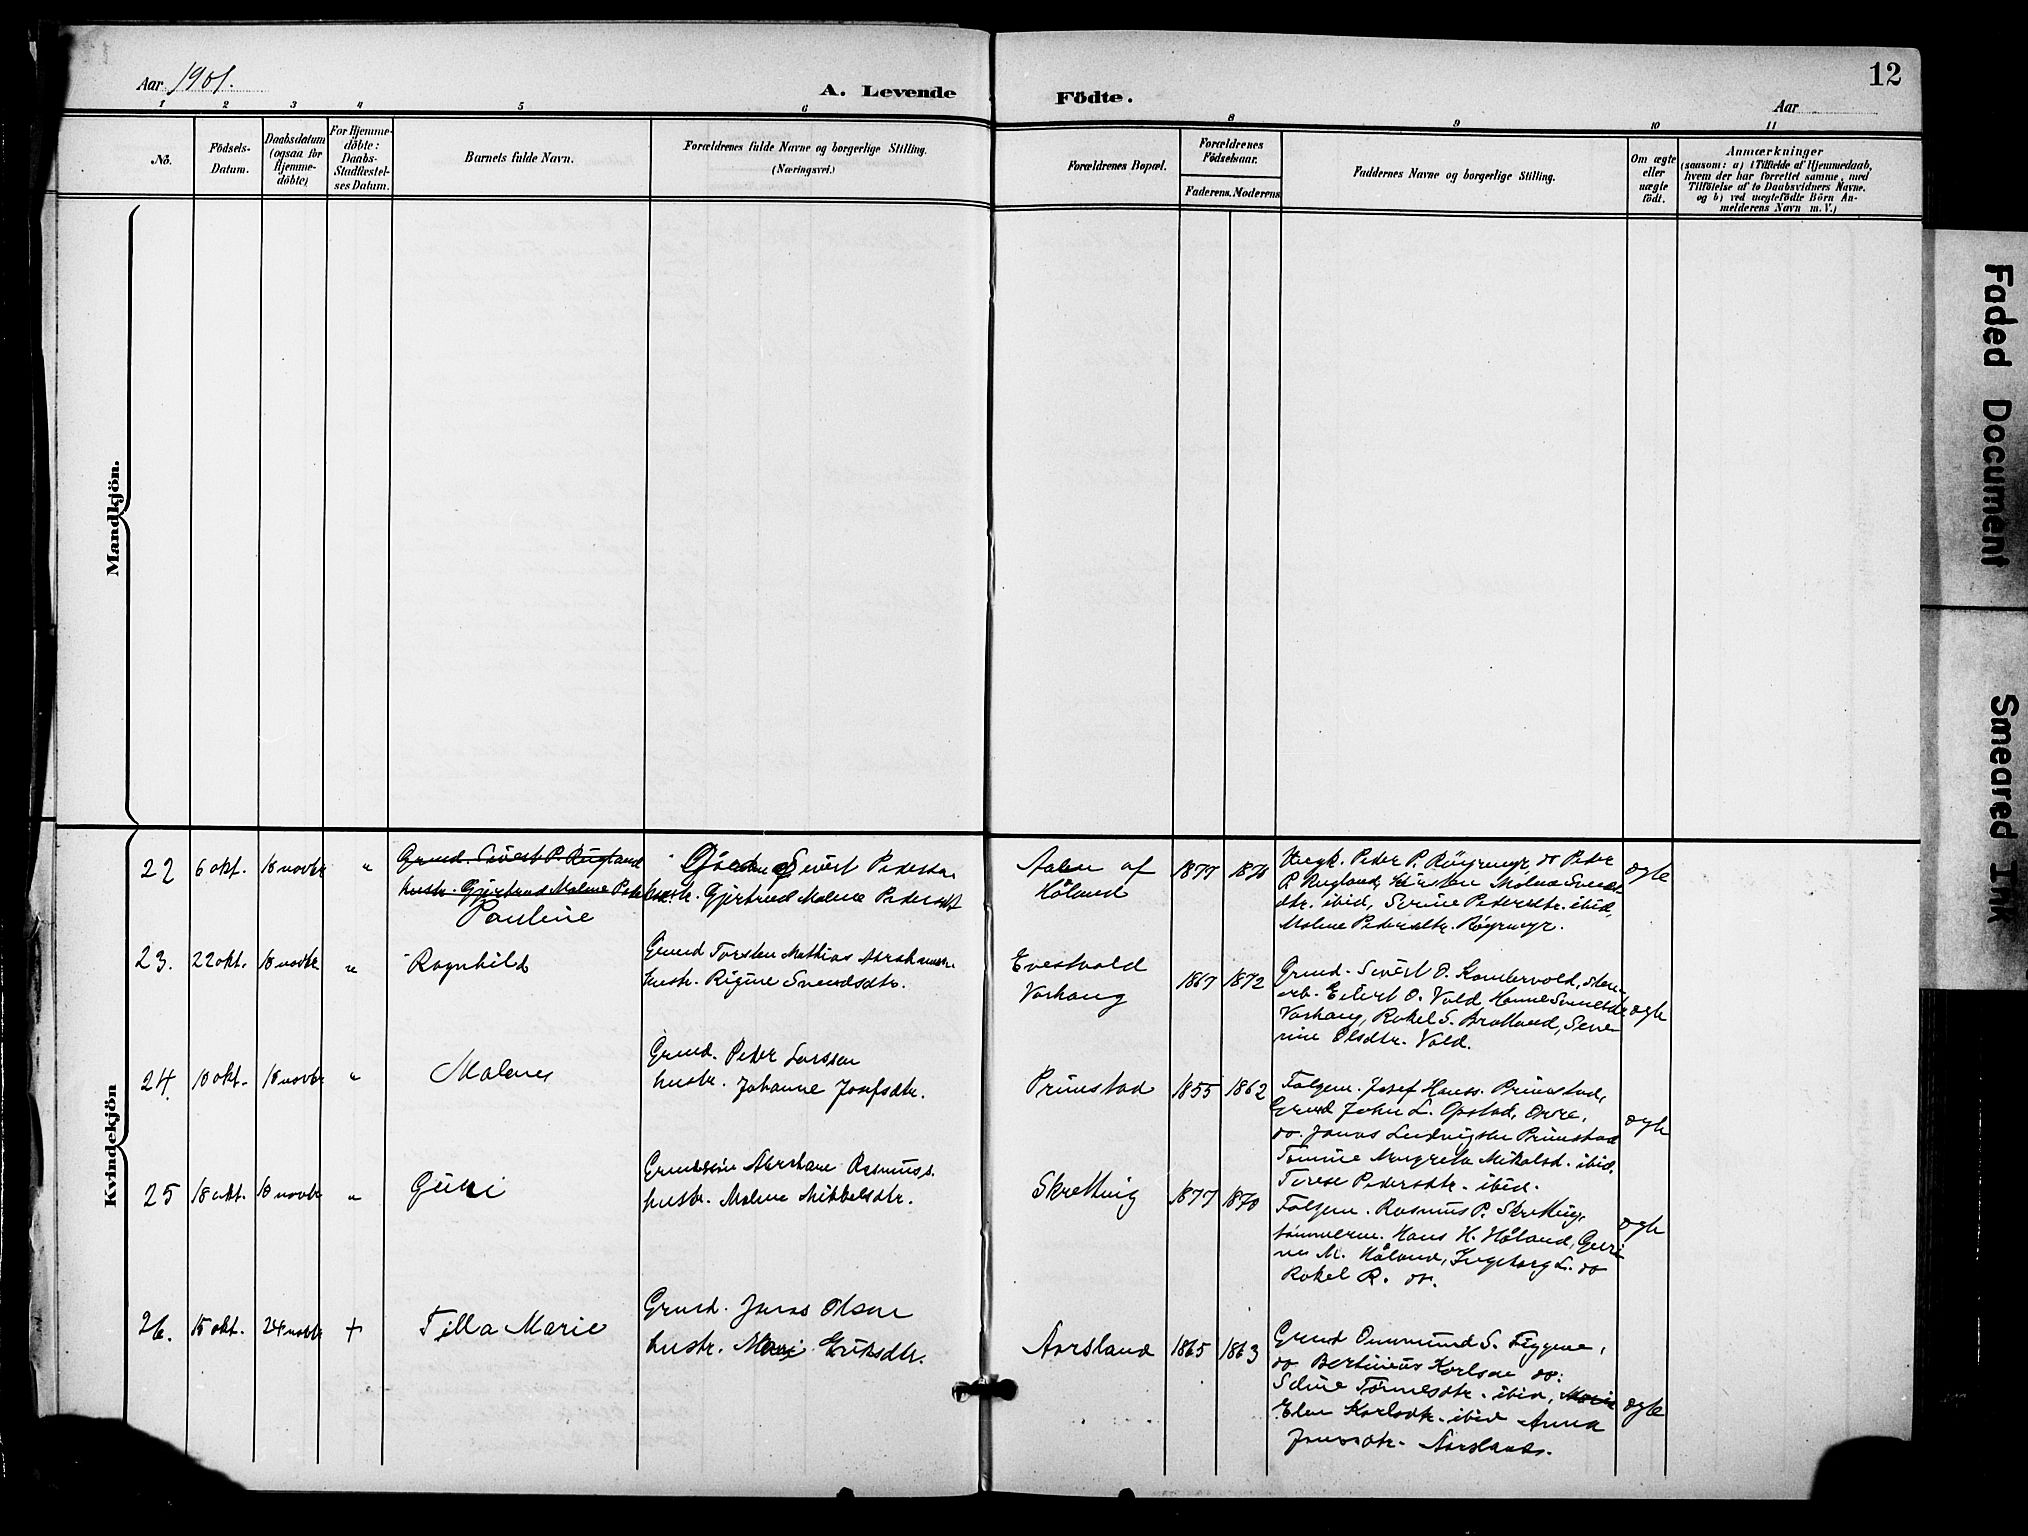 Aar 1901.
A. Levende Födte.
12
Aar
1 2 3 4 5 6 8 9 10 11
Nö.
Födsels-Datum.
Daabsdatum (ogsaa for Hjemme-döbte)
For Hjemme-döbte: Daabs-Stadfæstel-ses Datum.
Barnets fulde Navn.
Forældrenes fulde Navne og borgerlige Stilling. (Næringsvei.)
Forældrenes Bopæl.
Forældrenes Födselsaar.
Faderens. Moderens
Faddernes Navne og borgerlige Stilling.
Om ægte eller uægte födt.
Anmærkninger
(saasom: a) i Tilfælde af Hjemmedaab,
hvem der har forrettet samme, med
Tilföielse af to Daabsvidners Navne.
og b) ved uægtefödte Börn An-
melderens Navn m. V.)
Mandkjön.
Kvindekjön
22 6 okt. 18 novbr "
Grmd. Sivert P. Rugland
hustr. Gjertrud Malene Peder
Pauline
Sivert Pedersen
hustr. Gjertrud Malene Pedersdt
af Håland
1877 187
Peder P. Røgrmyr, do Peder
P. Rugland, Kirsten Malene Svend
dtr. ibid, Serine Pedersdtr. ibid,
Malene Pedersdtr. Røgrmyr.
ægte
23. 22 okt. 18 novbr "
Ragnhild
Grmd Torsten Mathias
hustr. Svendsdtr.
Varhaug
1867 1872
Grmd. Sivert O.
Eilert O. Vold, Hanne
Varhaug, Rakel S. Bratland, Seve
rine Olsdtr. Vold.
ægte
24. 10 okt. 18 novbr "
Malene
Grmd. Peder Larssen
hustr. Johanne Josefsdtr.
Primstad
1855 1862
Følgem. Josef Hanss. Primstad,
Grmd John L. Opstad,
do. Jonas Ludvigsen Primstad
Tomine Mikalsd. ibid.
Terese Pedersdtr. ibid.
ægte
25 18 okt. 18 novbr "
Guri
Rasmuss.
hustr. Malene Mikkelsdtr.
Skretting
1877 1870
Følgem. Rasmus P. Skretting,
Hans H. Håland, Guri
M. Håland, Ingeborg L. do
Rakel R. do.
ægte
26. 15 okt. 24 novbr +
Tilla Marie
Grmd. Jonas Olsen
hustr. Eriksdtr.
Aarsland
1865 1863
Grmd Ommund S.
do Bertinius Karlsen do.
Seline Tønnesdtr. ibid, Marie
Elen Karlsdtr. ibid Anna
Jonasdtr. Aarsland.
ægte
Faded Document
Smeared Ink